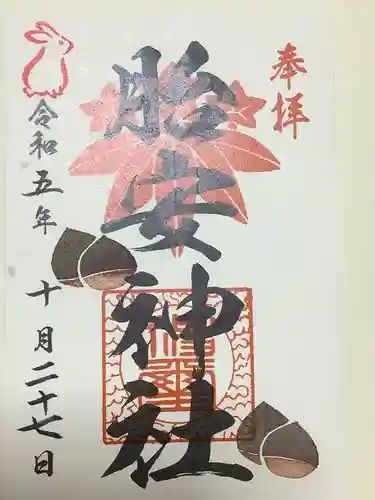 奉拝
胎安神社
令和五年
十月二十七日